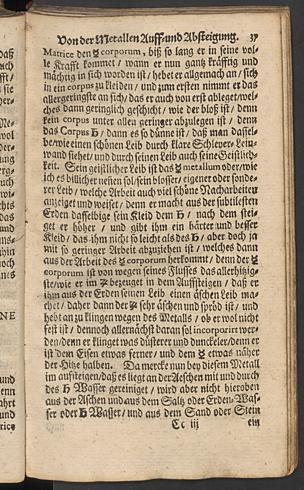 Von der Metallen Auff- und Absteigung. 37
Matrice den ☿ corporum, biß so lang er in seine vol-
le Krafft kommet / wann er nun gantz kräfftig und
mächtig in sich worden ist / hebet er allgemach an / sich
in ein corpus zu kleiden / und zum ersten nimmt er das
allergeringste an sich / das er auch von erst ableget / wel-
ches dann geringlich geschicht / wie der bloß ist / denn
kein corpus unter allen geringer abzulegen ist / denn
das Corpus ♄ / dann es so dünne ist / daß man dassel-
be / wie einen schönen Leib durch klare Schleyer- Lein-
wand siehet / und durch seinen Leib auch seine Geistlich-
keit. Sein geistlicher Leib ist das ☿ metallum oder / wie
ich es billicher nennen sol / sein blosser / eigener oder sonde-
rer Leib / welche Arbeit auch viel schöne Nacharbeiter
anzeiget und weiset / denn er macht aus der subtilesten
Erden dasselbige sein Kleid dem ♄ / nach dem stei-
get er höher / und gibt ihm ein härter und besser
Kleid / das ihm nicht so leicht als des ♄ / aber doch ja
mit so geringer Arbeit abzuziehen ist / welches dann
aus der Arbeit des ☿ corporum herkommt / denn der ☿
corporum ist von wegen seines Flusses das allerhitzig-
ste / wie er im ♃ bezeuget in dem Auffsteigen / daß er
ihm aus der Erden seinen Leib einen äschen Leib ma-
chet / daher dann der ♃ sehr äschen und spröd ist / und
hebt an zu klingen wegen des Metalls / ob er wol nicht
fest ist / dennoch allernächst daran sol incorporirt wer-
den / denn er klinget was düsterer und dunckeler / denn er
ist dem Eisen etwas ferner / und dem ☿ etwas näher
der Hitze halben. Da mercke nun bey diesem Metall
im aufsteigen / daß es liegt an der Aeschen mit und durch
des ♄ Wasser gereiniget / wird aber nicht hieroben
aus der Aschen und aus dem Saltz oder Erden- Was-
ser oder ♄ Wasser / und aus dem Sand oder Stein
Cc iij ein